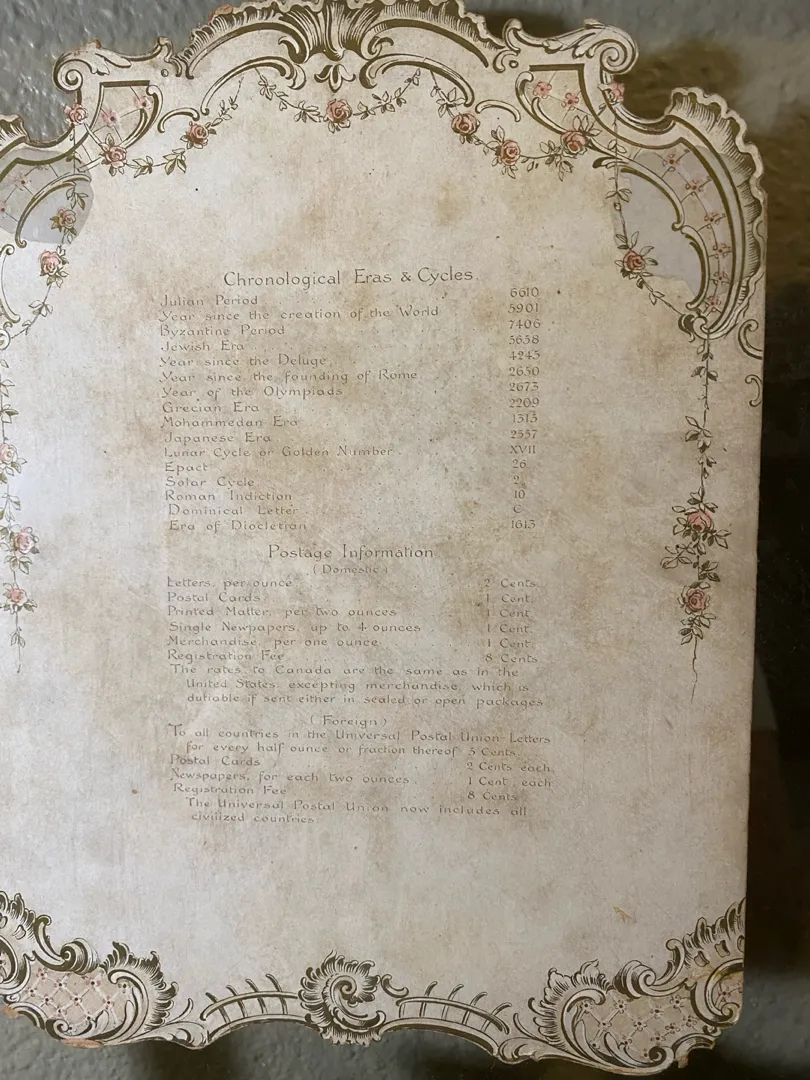 Chronological Eras & Cycles.
Julian Period 6610
Year since the creation of the World 5901
Byzantine Period 7406
Jewish Era 5658
Year since the Deluge, 4245
Year since the founding of Rome 2650
Year of the Olympiads 2673
Grecian Era 2209
Mohammedan Era 1315
Japanese Era 2557
Lunar Cycle or Golden Number XVII
Epact 26
Solar Cycle 2
Roman Indiction 10
Dominical Letter C
Era of Diocletian 1613
Postage Information
(Domestic)
Letters, per ounce 2 Cents.
Postal Cards 1 Cent.
Printed Matter, per two ounces 1 Cent
Single Newpapers, up to 4 ounces 1 Cent.
Merchandise, per one ounce 1 Cent.
Registration Fee 8 Cents
The rates to Canada are the same as in the
United States, excepting merchandise, which is
dutiable if sent either in sealed or open packages
(Foreign)
To all countries in the Universal Postal Union Letters
for every half ounce or fraction thereof 5 Cents
Postal Cards 2 Cents each,
Newspapers, for each two ounces 1 Cent, each
Registration Fee 8 Cents
The Universal Postal Union now includes all
civilized countries